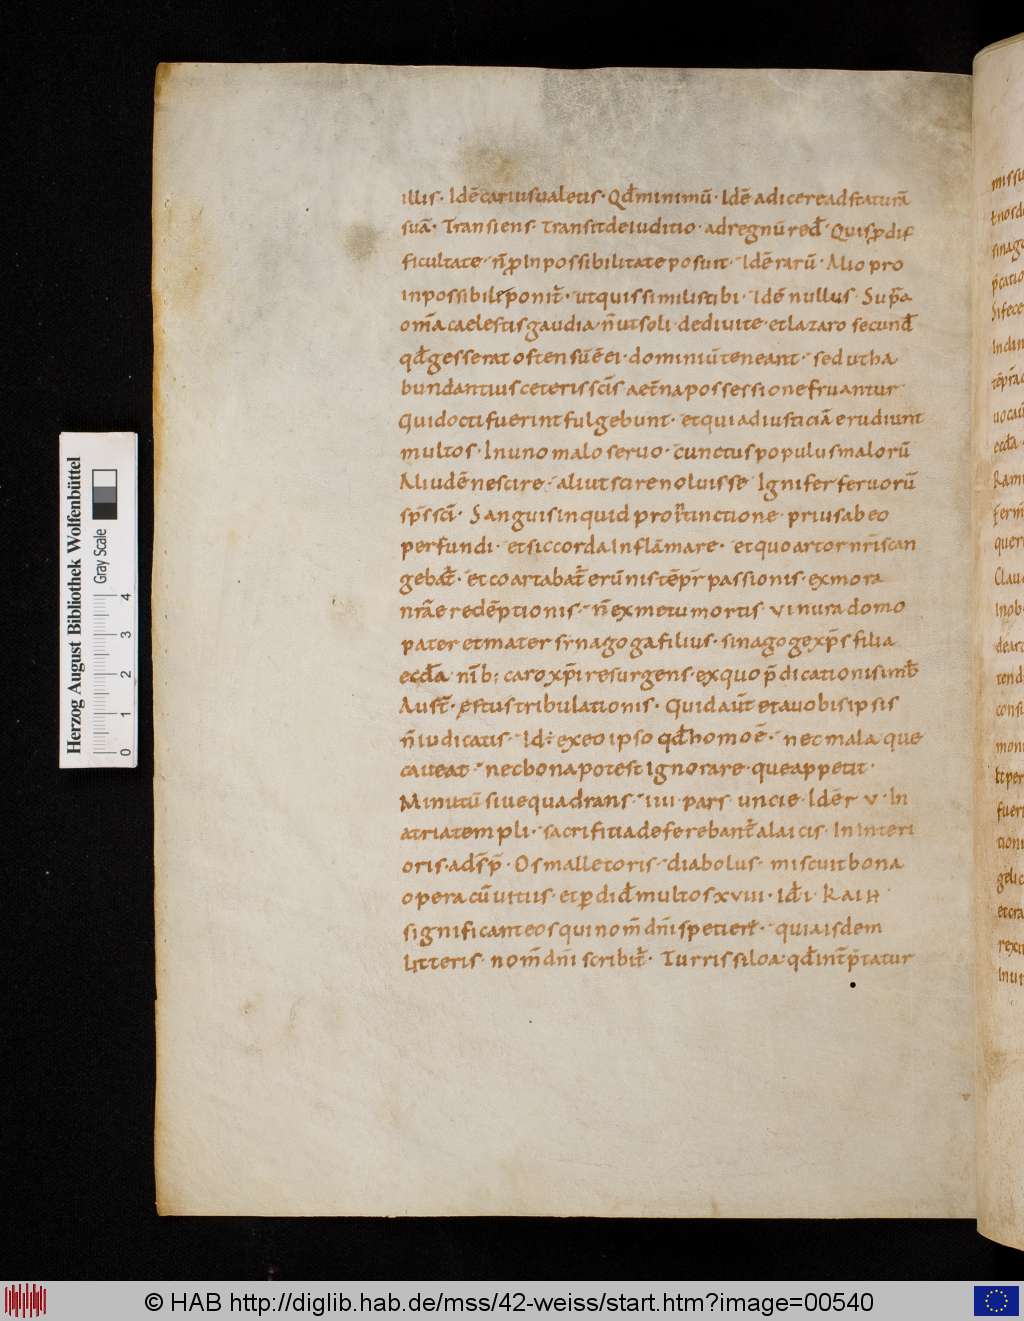 illis · Idē cariusualetis · Qđ minimū · Idē adicere ad staturā
suā · Transiens · Transit de iuditio · ad regnū red̄ · Quis ꝓ dif
ficultate · n̄ ꝓ inpossibilitate posuit · Idē rarū · Alio pro
inpossibile ponit̄ · ut quis similis tibi · Idē nullus · Sup̄a
om̄a caelestis gaudia · n̄ ut soli · dediuite · et lazaro secund̄
qđ gesserat ostensū ē ei · dominiū teneant · sed ut ha
bundantius ceteris sc̄is aet̄na possessione fruantur
Qui docti fuerint fulgebunt · et qui ad iusticiā erudiunt
multos · In uno malo seruo · cunctus populus malorū
Aliud ē nescire · aliut scire noluisse Ignifer feruorū
sp̄s sc̄i · Sanguis inquid pro tinctione · prius abeo
perfundi · et sic corda inflāmare · et quo artor nr̄is can
gebat̄ · et coartabat̄ erūnis tēpr̄ passionis · ex mora
nrāe redēptionis · n̄ ex metu mortis · vi nura domo
pater et mater synagoga filius · sinagoge xp̄s filia
eccl̄a nīb; caro xp̄i resurgens · ex quo p̄dicationis imb̄
Aust̄ · estus tribulationis · Quid aūt et a uobis ipsis
n̄ iudicatis · Id; ex eo ipso qđ homo ē · nec mala que
caueat · nec bona potest ignorare · que appetit ·
Minutū siue quadrans · iiii · pars uncie · Idēr v · In
atria templi · sacrifitia deferebant̄ a laicis · In interi
oris · a ds̄p̄ · Os malleto ris · diabolus · miscuit bona
opera cū uitiis · et ꝑdid̄ multos xviii · Id̄i · Raih ·
significant eos qui nom̄ dn̄i spetier̄ · quia isdem
litteris · nom̄ dn̄i scribit̄ · Turris siloa · qđ int̄p̄tatur
missu
Herzog August Bibliothek Wolfenbüttel
Gray Scale
0 1 2 3 4
© HAB http://diglib.hab.de/mss/42-weiss/start.htm?image=00540